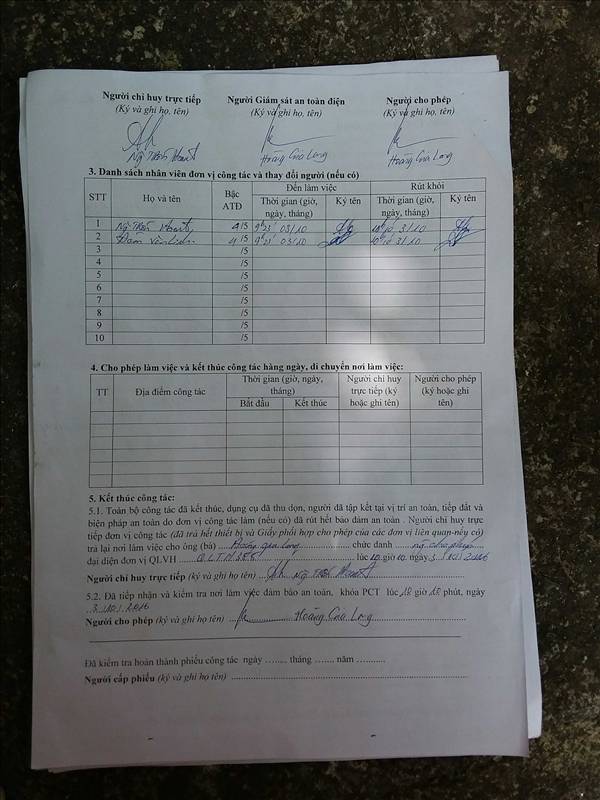 Người chỉ huy trực tiếp Người Giám sát an toàn điện Người cho phép
(Ký và ghi họ, tên) (Ký và ghi họ, tên) (Ký và ghi họ, tên)
Hoàng Gia Long Hoàng Gia Long
3. Danh sách nhân viên đơn vị công tác và thay đổi người (nếu có)
STT Họ và tên Bậc ATĐ Đến làm việc Rút khỏi
Thời gian (giờ, ngày, tháng) Ký tên Thời gian (giờ, ngày, tháng) Ký tên
1 4/5 03/10 3/10
2 Đàm Văn 4/5 03/10 3/10
3 /5
4 /5
5 /5
6 /5
7 /5
8 /5
9 /5
10 /5
4. Cho phép làm việc và kết thúc công tác hàng ngày, di chuyển nơi làm việc:
TT Địa điểm công tác Thời gian (giờ, ngày, tháng) Người chỉ huy trực tiếp (ký hoặc ghi tên) Người cho phép (ký hoặc ghi tên)
Bắt đầu Kết thúc
5. Kết thúc công tác:
5.1. Toàn bộ công tác đã kết thúc, dụng cụ đã thu dọn, người đã tập kết tại vị trí an toàn, tiếp đất và
biện pháp an toàn do đơn vị công tác làm (nếu có) đã rút hết bảo đảm an toàn . Người chỉ huy trực
tiếp đơn vị công tác (đã trả hết thiết bị và Giấy phối hợp cho phép của các đơn vị liên quan-nếu có)
trả lại nơi làm việc cho ông (bà) Hoàng Gia Long chức danh ng cho phép
đại diện đơn vị QLVH lúc giờ ngày
Người chỉ huy trực tiếp (ký và ghi họ tên)
5.2. Đã tiếp nhận và kiểm tra nơi làm việc đảm bảo an toàn, khóa PCT lúc giờ phút, ngày
3/10/2016
Người cho phép (ký và ghi họ tên) Hoàng Gia Long
Đã kiểm tra hoàn thành phiếu công tác ngày ........ tháng ....... năm ..........
Người cấp phiếu (ký và ghi họ tên)